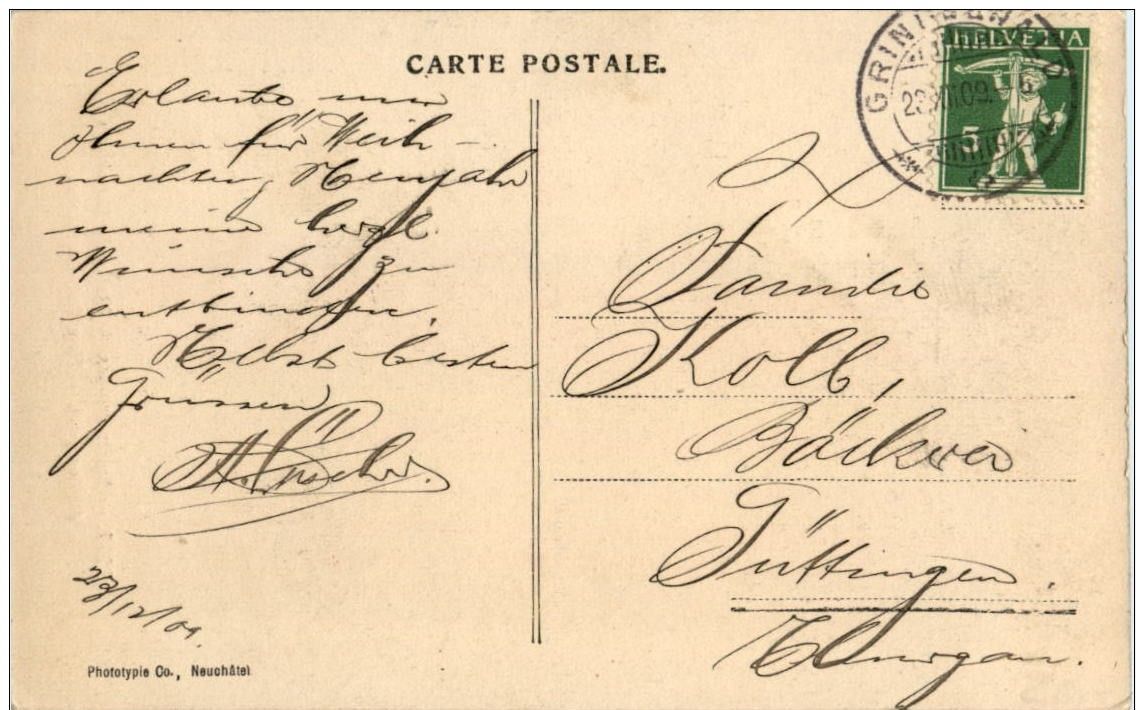 CARTE POSTALE.
GRINDELWALD
23.XII.09.
HELVETIA
5
Erlaube mir
Ihnen für Weih-
nachten u. Neujahr
meine herzl.
Wünsche zu
entbinden.
Nebst besten
Grüssen
23/12/09.
Familie
Kolb,
Bäckerei
Güttingen.
Thurgau.
Phototypie Co., Neuchâtel